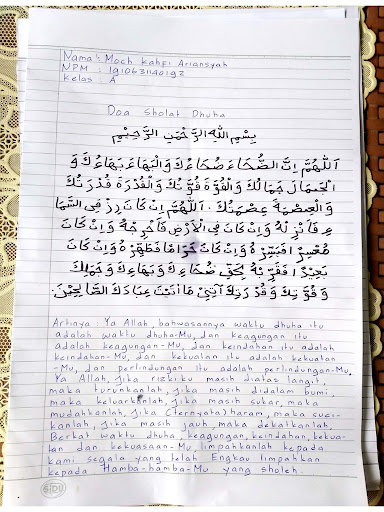 Nama : Moch Kahfi Ariansyah
NPM : 191063140192
Kelas : A
Doa Sholat Dhuha
بِسْمِ اللهِ الرَّحْمٰنِ الرَّحِيْمِ
اَللّٰهُمَّ اِنَّ الضُّحَاءَ ضُحَاءُكَ وَالْبَهَاءَ بَهَاءُكَ وَ
الْجَمَالَ جَمَالُكَ وَالْقُوَّةَ قُوَّتُكَ وَالْقُدْرَةَ قُدْرَتُكَ
وَالْعِصْمَةَ عِصْمَتُكَ . اَللّٰهُمَّ اِنْ كَانَ رِزْقِى فِى السَّمَا
ءِ فَأَنْزِلْهُ وَاِنْ كَانَ فِى الْأَرْضِ فَأَخْرِجْهُ وَاِنْ كَانَ
مُعَسِّرًا فَيَسِّرْهُ وَاِنْ كَانَ حَرَامًا فَطَهِّرْهُ وَاِنْ كَانَ
بَعِيْدًا فَقَرِّبْهُ بِحَقِّ ضُحَاءِكَ وَبَهَاءِكَ وَجَمَالِكَ
وَقُوَّتِكَ وَقُدْرَتِكَ آتِنِيْ مَا أَتَيْتَ عِبَادَكَ الصَّالِحِيْنَ.
Artinya : Ya Allah, bahwasannya waktu dhuha itu
adalah waktu dhuha-Mu, dan keagungan itu
adalah keagungan-Mu, dan keindahan itu adalah
keindahan-Mu, dan kekuatan itu adalah kekuatan
-Mu, dan perlindungan itu adalah perlindungan-Mu.
Ya Allah, jika rizkiku masih diatas langit,
maka turunkanlah, jika masih didalam bumi,
maka keluarkanlah, jika masih sukar, maka
mudahkanlah, jika (ternyata) haram, maka suci-
kanlah, jika masih jauh, maka dekatkanlah.
Berkat waktu dhuha, keagungan, keindahan, kekua-
tan dan kekuasaan-Mu, limpahkanlah kepada
kami segala yang telah Engkau limpahkan
kepada Hamba-hamba-Mu yang sholeh.
SiDU